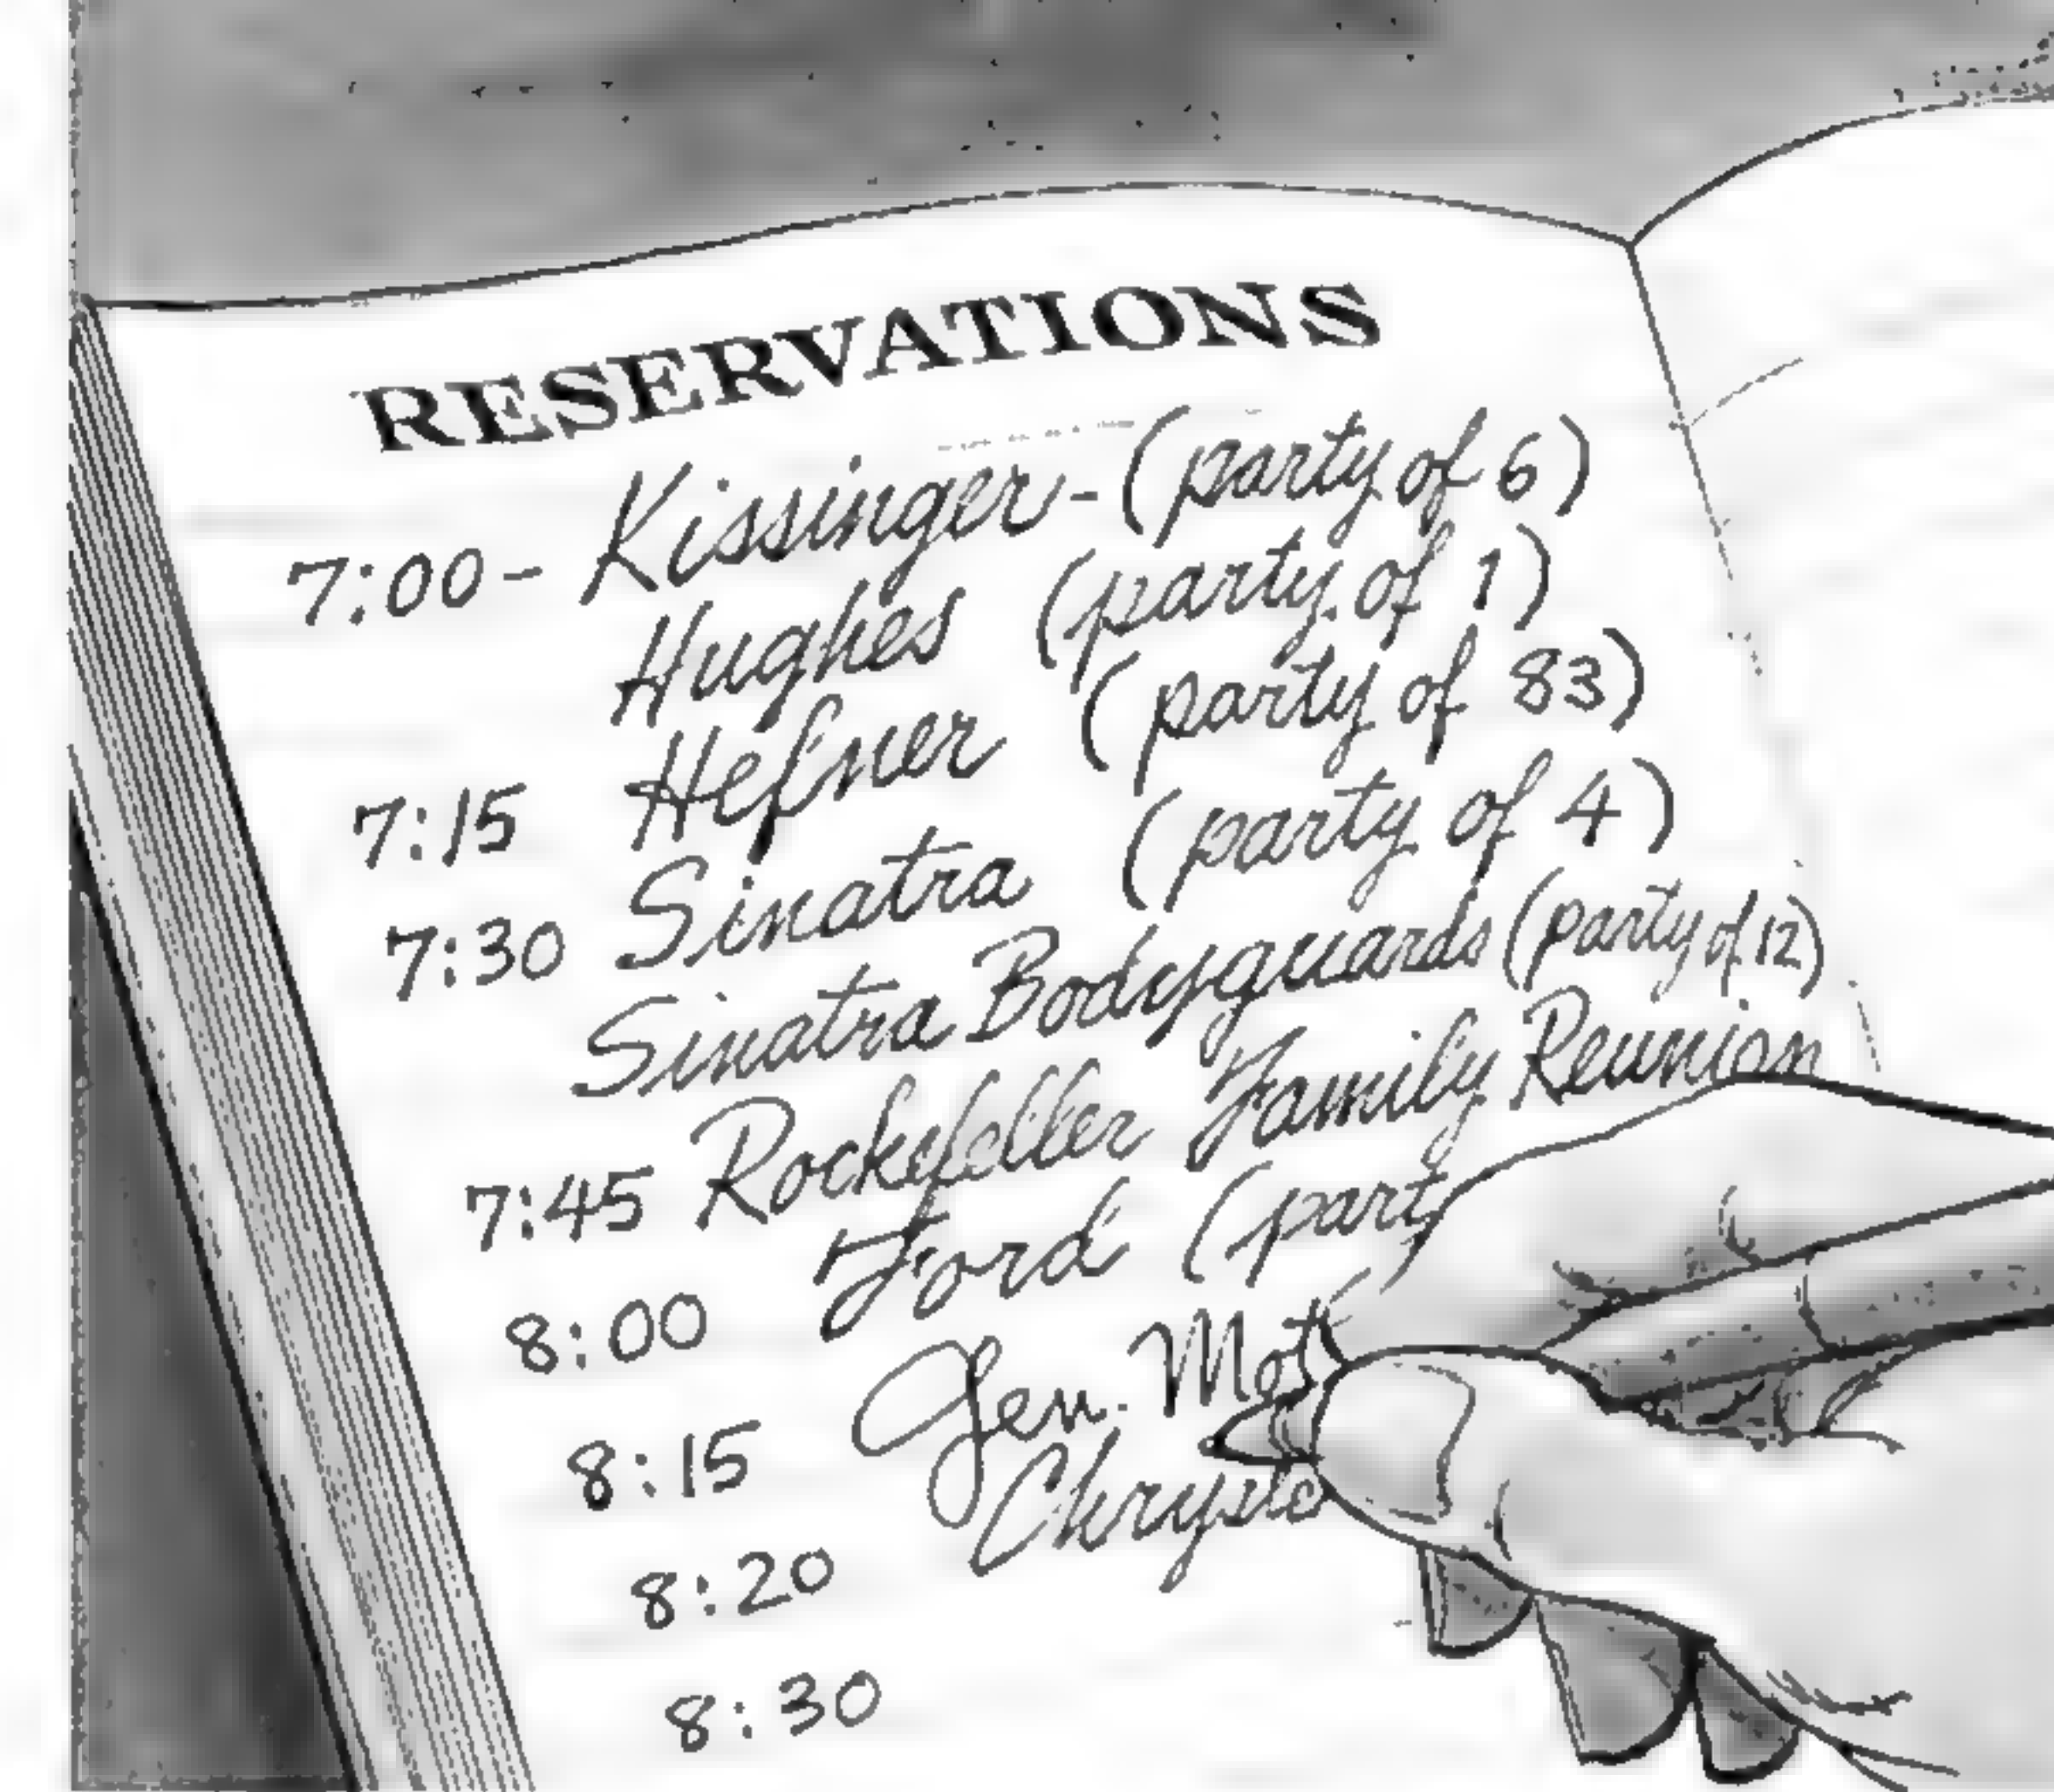 RESERVATIONS
7:00 - Kissinger - (party of 6)
Hughes (party of 1)
7:15 Hefner (party of 83)
7:30 Sinatra (party of 4)
Sinatra Bodyguards (party of 12)
7:45 Rockefeller Family Reunion
8:00 Ford (part
8:15 Gen. Mot
8:20 Chrysle
8:30